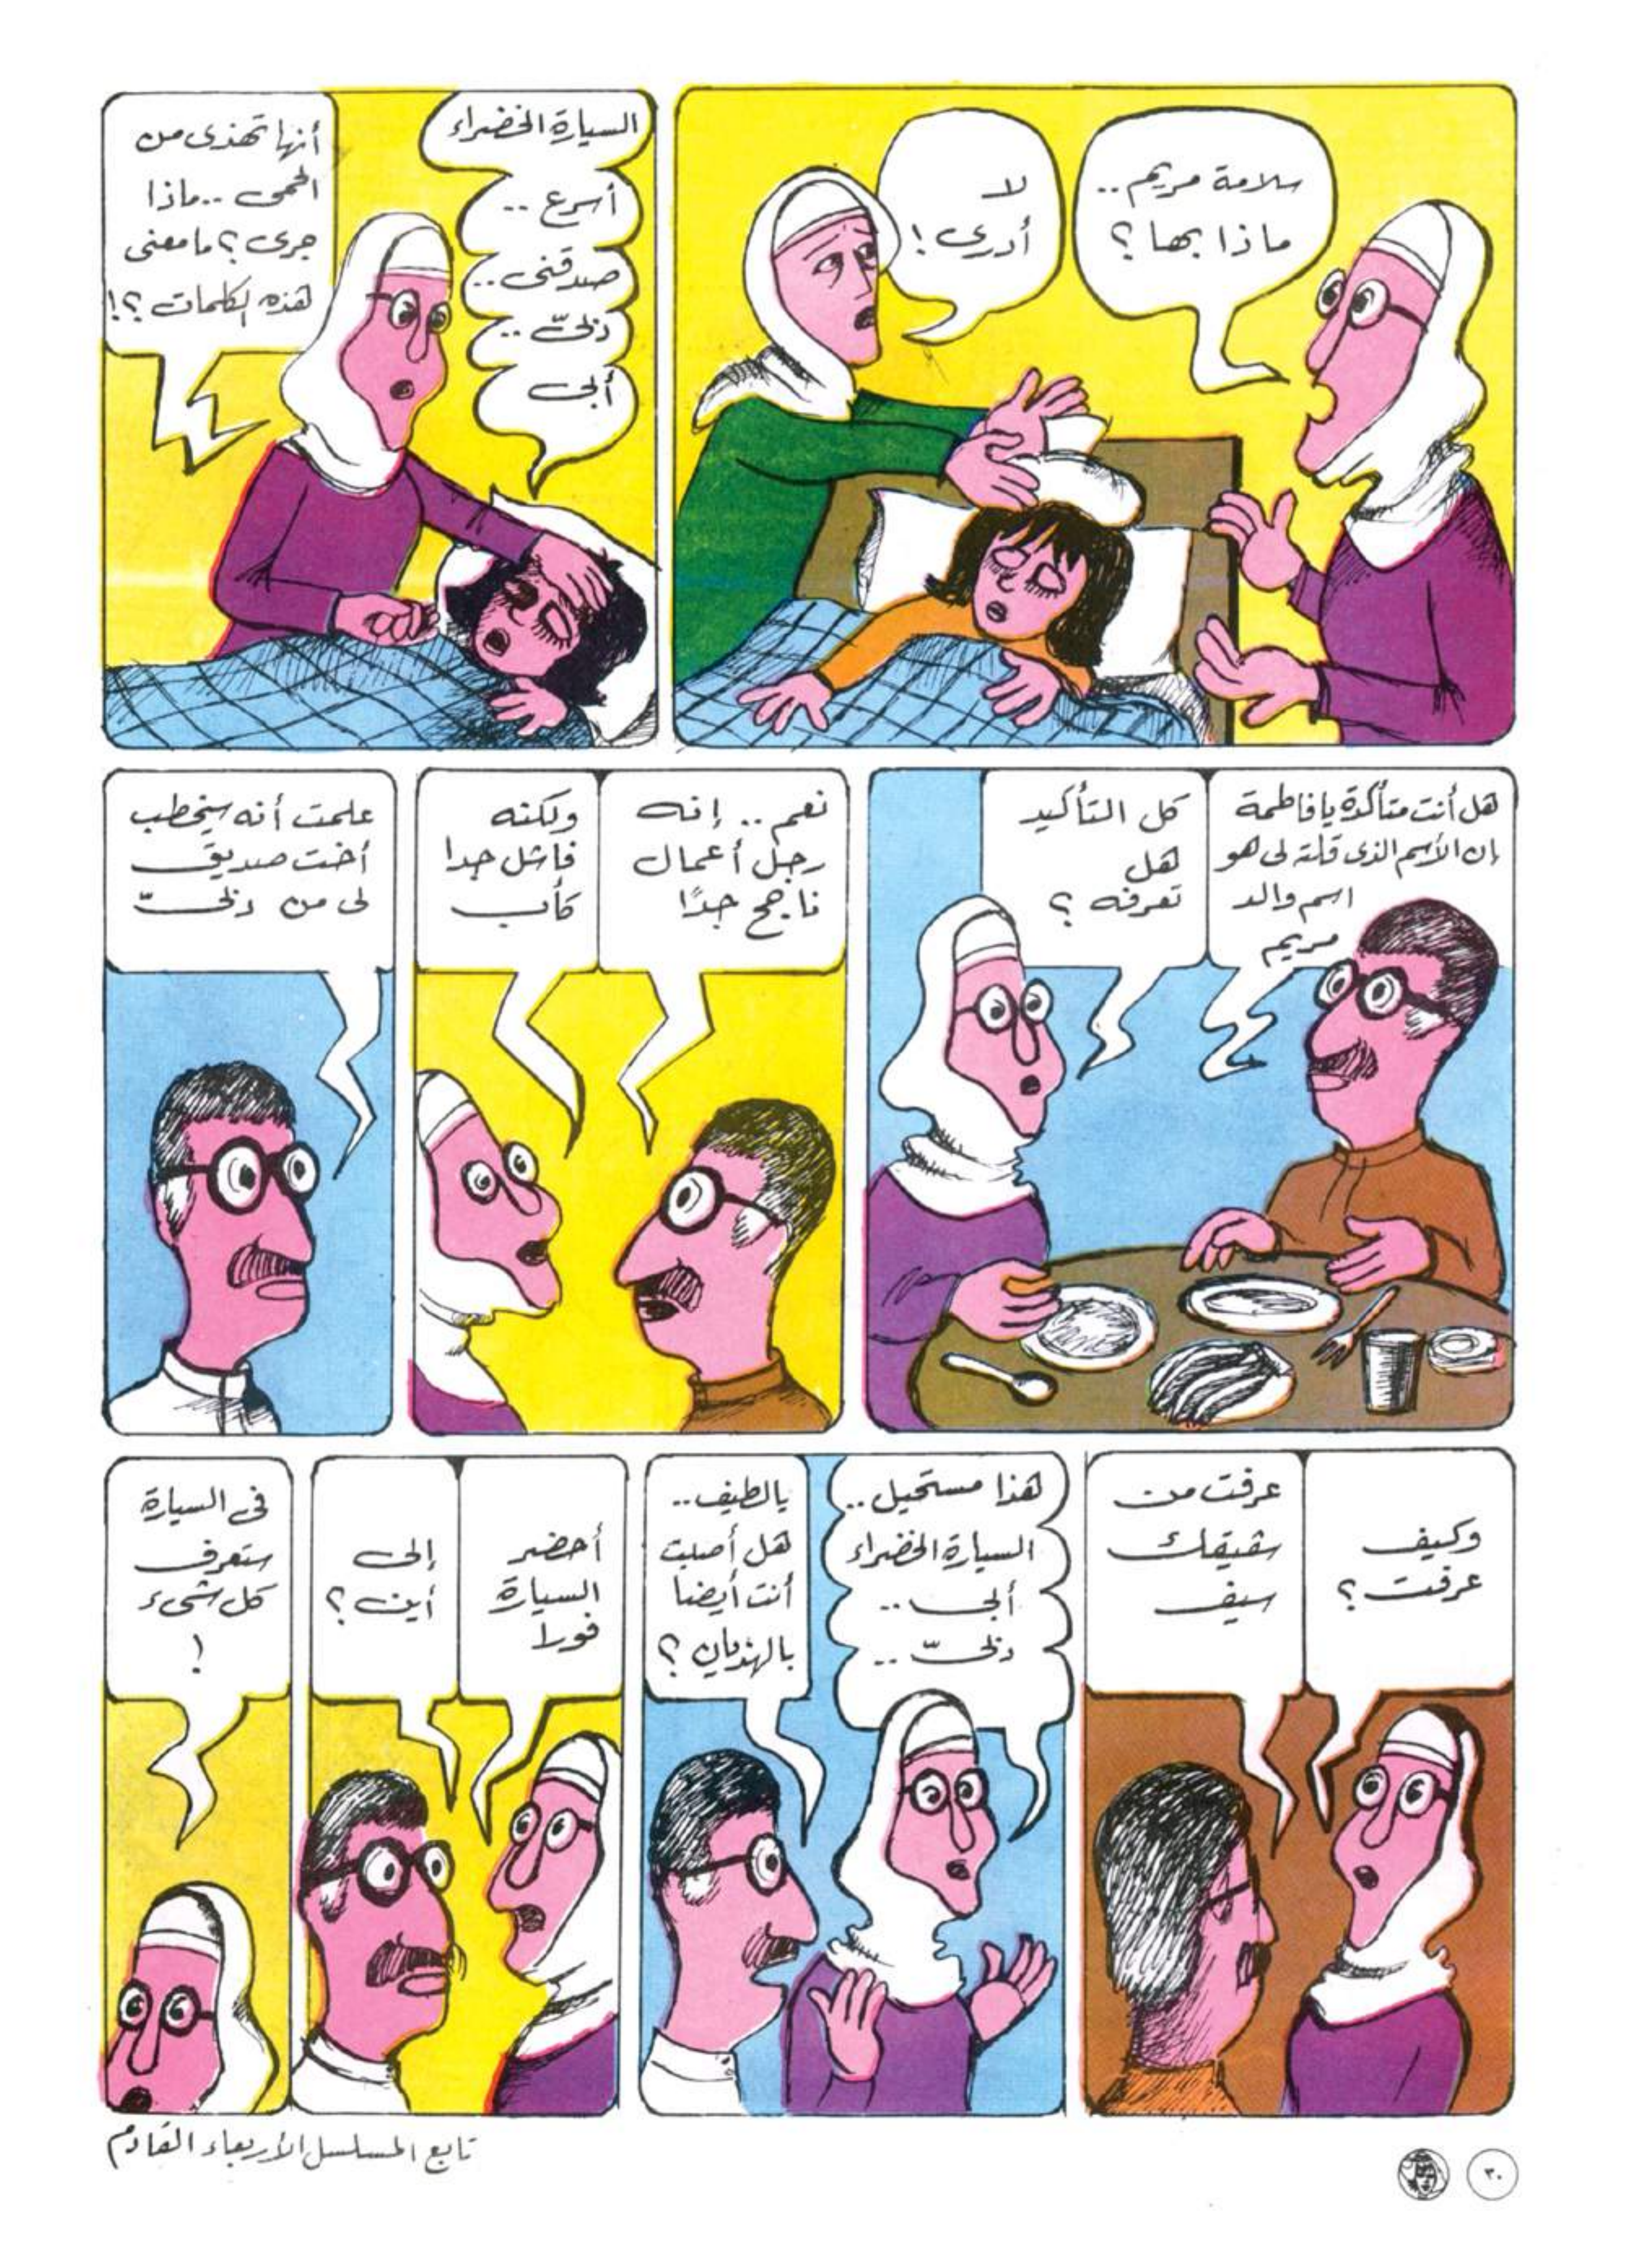 سلامة مريم ..
ماذا بها ؟
لا
أدرى !
السيارة الخضراء
أسرع ..
صدقنى ..
دبىّ ..
أبى
أنها تهذى من
الحمى .. ماذا
جرى ؟ ما معنى
هذه الكلمات ؟!
هل أنت متأكدة يا فاطمة
إن الأسم الذى قلته لى هو
اسم والد
مريم
كل التأكيد
هل
تعرفه ؟
نعم .. إنه
رجل أعمال
ناجح جدًا
ولكنه
فاشل جدا
كأب
علمت أنه سيخطب
أخت صديق
لى من دبىّ
وكيف
عرفت ؟
عرفت من
شقيقك
سيف
هذا مستحيل ..
السيارة الخضراء
أبى ..
دبىّ ..
يالطيف ..
هل أصبت
أنت أيضا
بالهذيان ؟
أحضر
السيارة
فورا
إلى
أين ؟
فى السيارة
ستعرف
كل شىء
!
تابع المسلسل الأربعاء القادم
٣٠